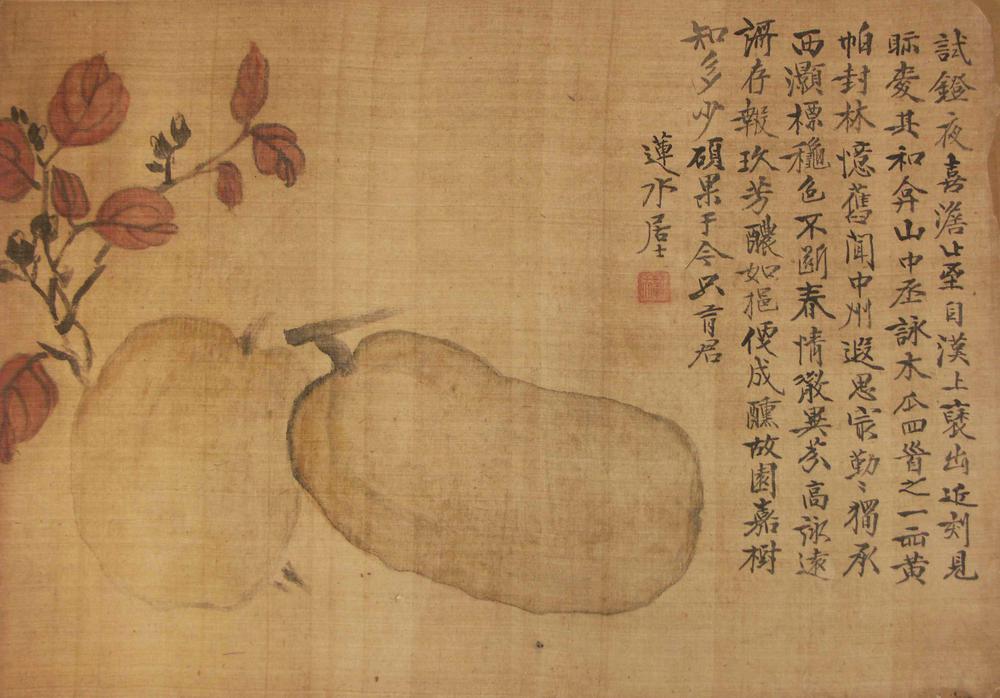 試鐙夜喜澹止至自漢上褎出近刻見
眎爰其和弇山中丞詠木瓜四首之一而黃
帕封林憶舊聞中州遐思宗勤〻獨承
西灝標穠色不斷春情散異芬高詠遠
讶存報玖芳醲如挹便成醺故園嘉樹
知多少碩果于今只有君
蓮水居士